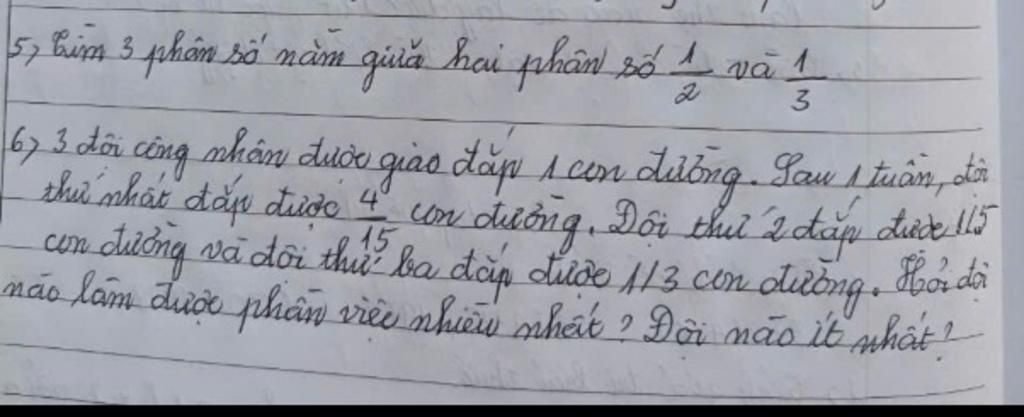 5, Tìm 3 phân số nằm giữa hai phân số 1/2 và 1/3
6, 3 đôi công nhân được giao đắp 1 con đường. Sau 1 tuần, đôi
thứ nhất đắp được 4/15 con đường. Đội thứ 2 đắp được 1/5
con đường và đôi thứ ba đắp được 1/3 con đường. Hỏi đội
nào làm được phần việc nhiều nhất? Đội nào ít nhất?